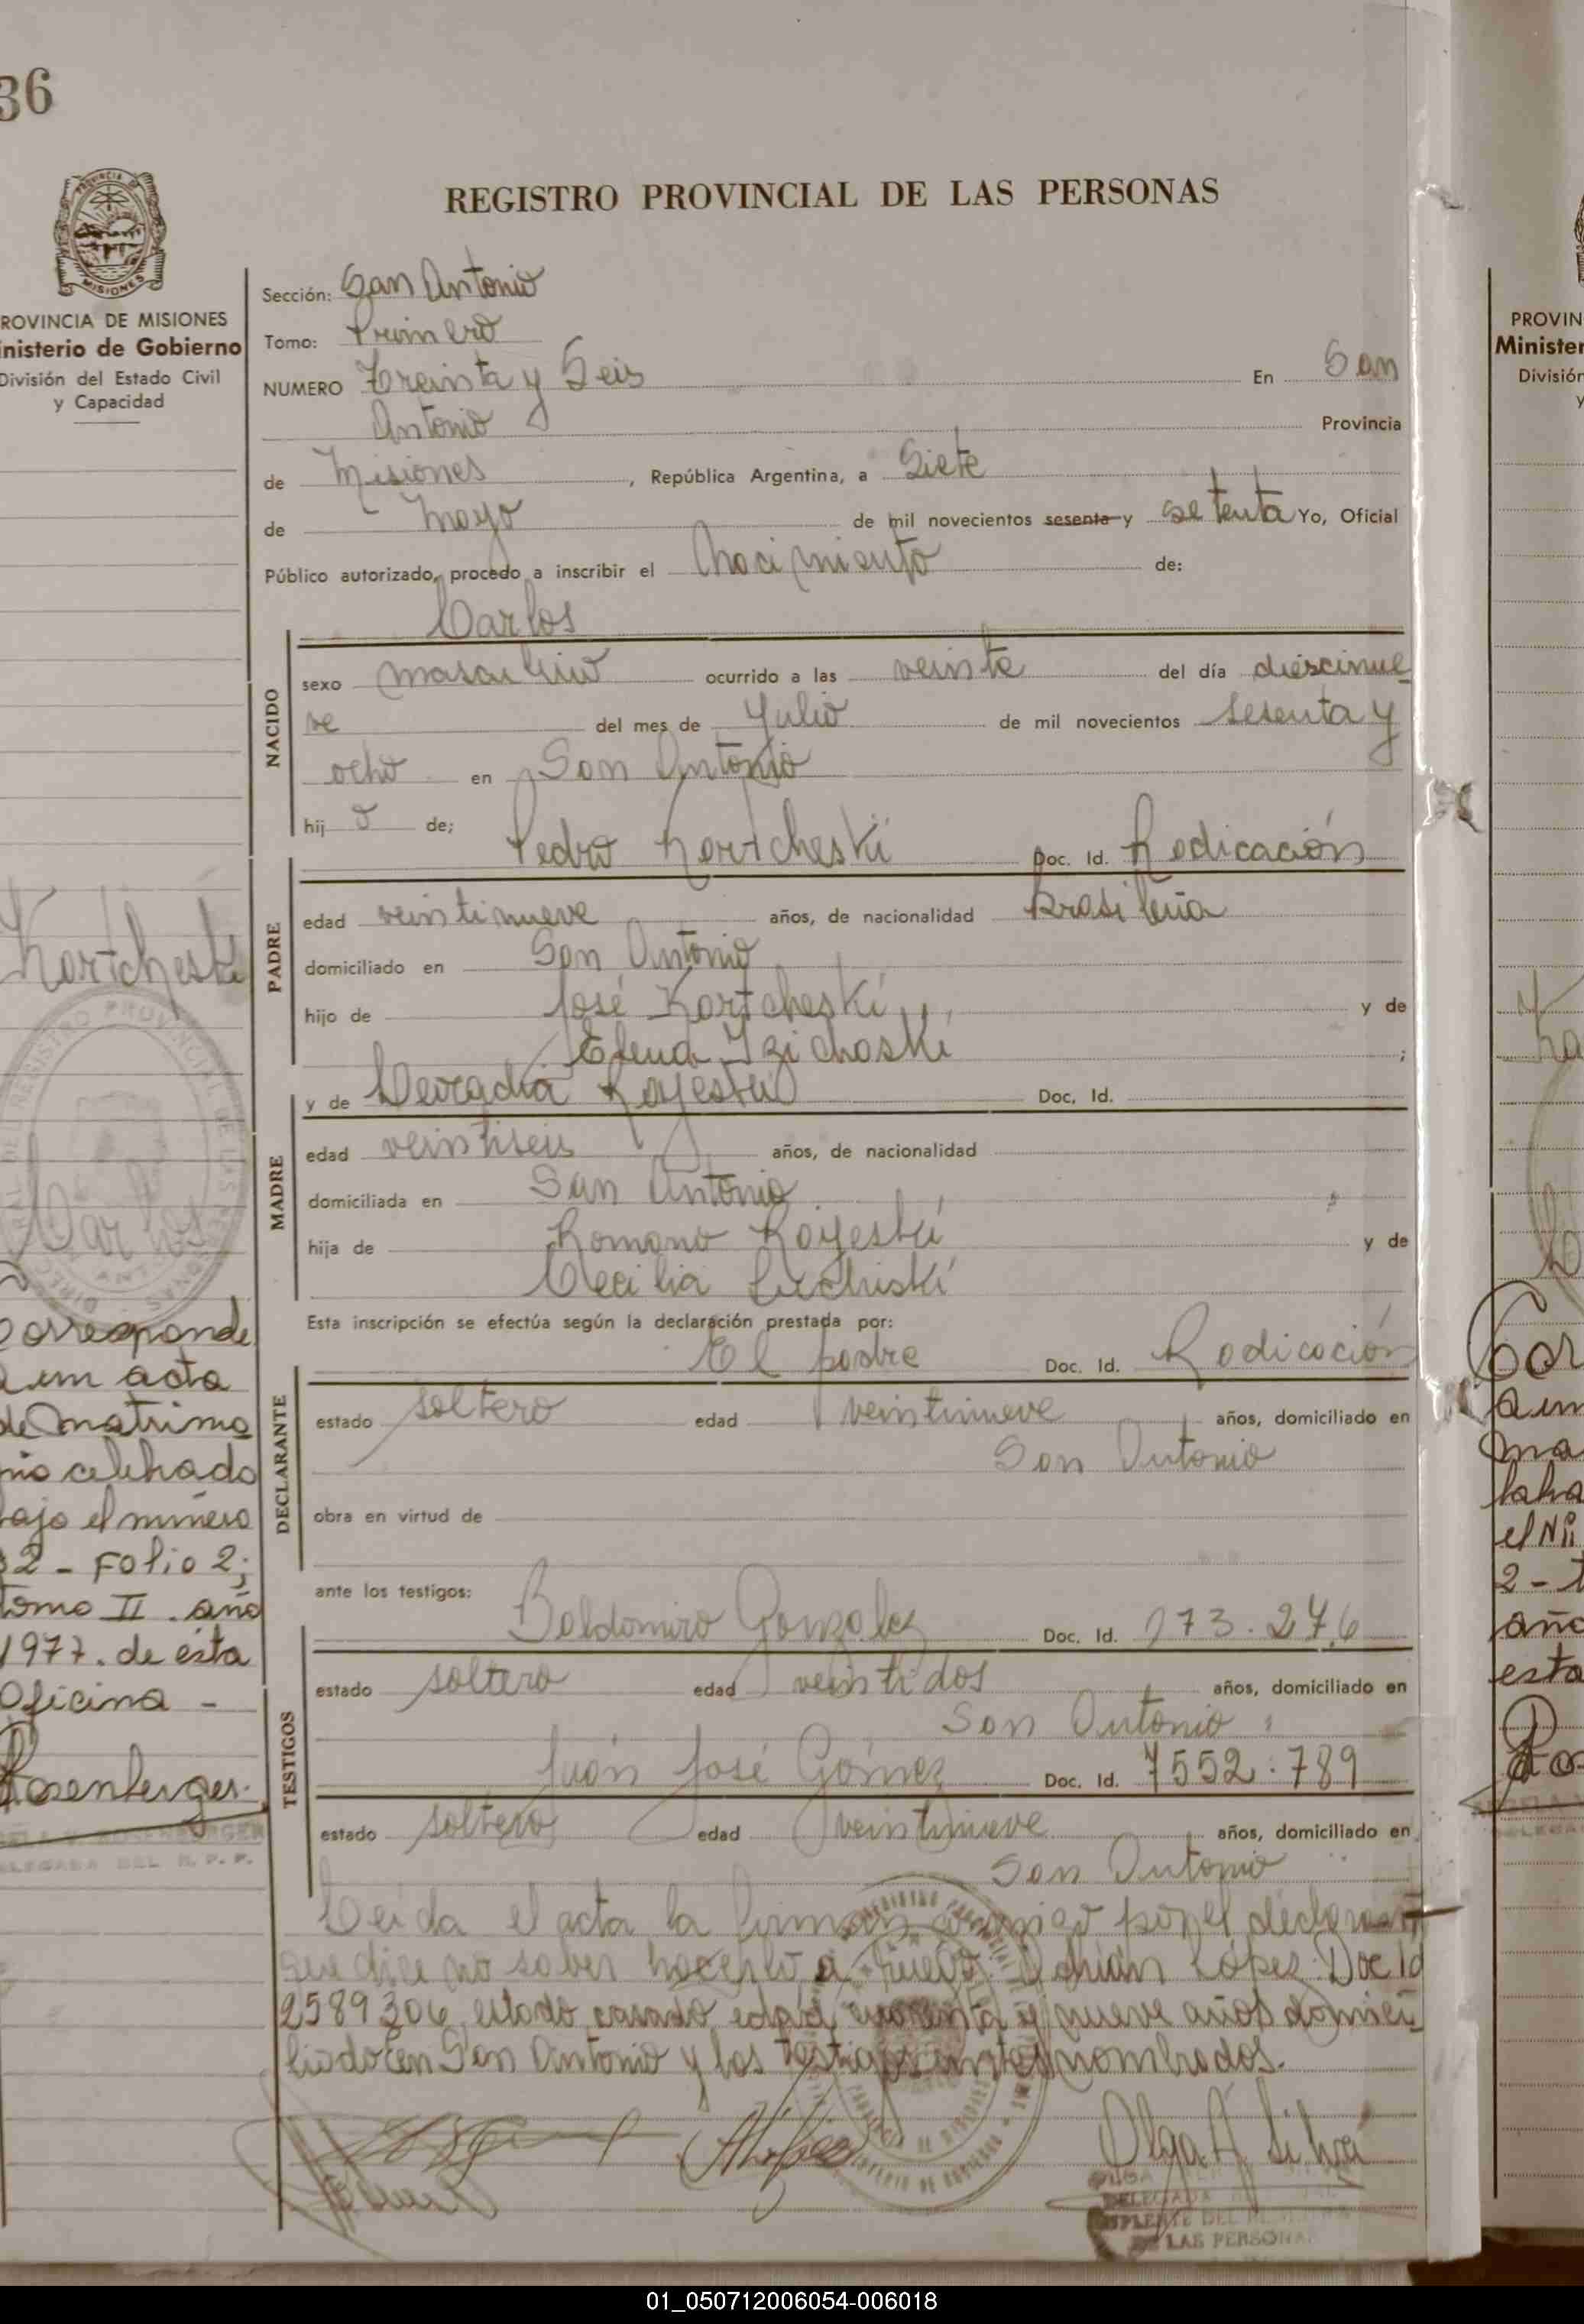 36
REGISTRO PROVINCIAL DE LAS PERSONAS
PROVINCIA DE MISIONES
ROVINCIA DE MISIONES
inisterio de Gobierno
División del Estado Civil
y Capacidad
Sección: San Antonio
Tomo: Primero
NUMERO Treinta y Seis En San
Antonio Provincia
de Misiones, República Argentina, a Siete
de Mayo de mil novecientos sesenta y setenta Yo, Oficial
Público autorizado, procedo a inscribir el Nacimiento de:
Carlos
NACIDO
sexo masculino ocurrido a las veinte del día diescinue
ve del mes de Julio de mil novecientos sesenta y
ocho en San Antonio
hijo de; Pedro Kortcheski Doc. Id. Radicación
PADRE
edad veintinueve años, de nacionalidad Brasileña
domiciliado en San Antonio
hijo de José Kortcheski y de
Elena Izichoski;
y de Leocadia Koyeski Doc. Id.
MADRE
edad veintiseis años, de nacionalidad
domiciliada en San Antonio
hija de Romano Koyeski y de
Cecilia
Esta inscripción se efectúa según la declaración prestada por:
El padre Doc. Id. Radicación
DECLARANTE
estado soltero edad veintinueve años, domiciliado en
San Antonio
obra en virtud de
ante los testigos:
Baldomiro Gonzalez Doc. Id. 173.276
TESTIGOS
estado soltero edad veintidos años, domiciliado en
San Antonio
Juan José Gómez Doc. Id. 7552.789
estado soltero edad veintinueve años, domiciliado en
San Antonio
Leida el acta la firman conmigo por el declarant
que dice no saber hacerlo a ruego Adrián López Doc Id
2589306, estado casado, edad cuarenta y nueve años domici
liado en San Antonio y los testigos antes nombrados.
Olga A Silva
Kortcheski
Carlos
Corresponde
a un acta
de matrimo
nio celebrado
bajo el número
32 - Folio 2;
tomo II. año
1977. de esta
Oficina -
Rosenberger
DELEGADA DEL R. P. P.
PROVIN
Minister
División
y
01_050712006054-006018